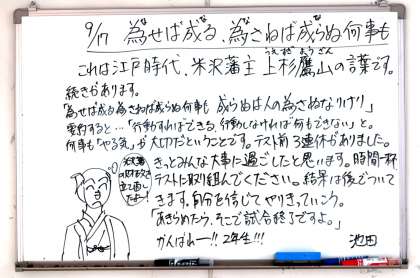 9/17 為せば成る、為さねば成らぬ何事も
これは江戸時代、米沢藩主 上杉鷹山の言葉です。
続きがあります。
「為せば成る為さねば成らぬ何事も 成らぬは人の為さぬなりけり」
要約すると…「行動すればできる、行動しなければ何もできない」と。
何事も"やる気"が大切だということです。テスト前3連休がありました。
きっとみんな大事に過ごしたと思います。時間一杯
テストに取り組んでください。結果は後でついて
きます。自分を信じてやりきっていこう。
「あきらめたら、そこで試合終了ですよ。」
がんばれー!! 2年生!!!
池田
米沢藩
の財政を
立て直し
たよー!